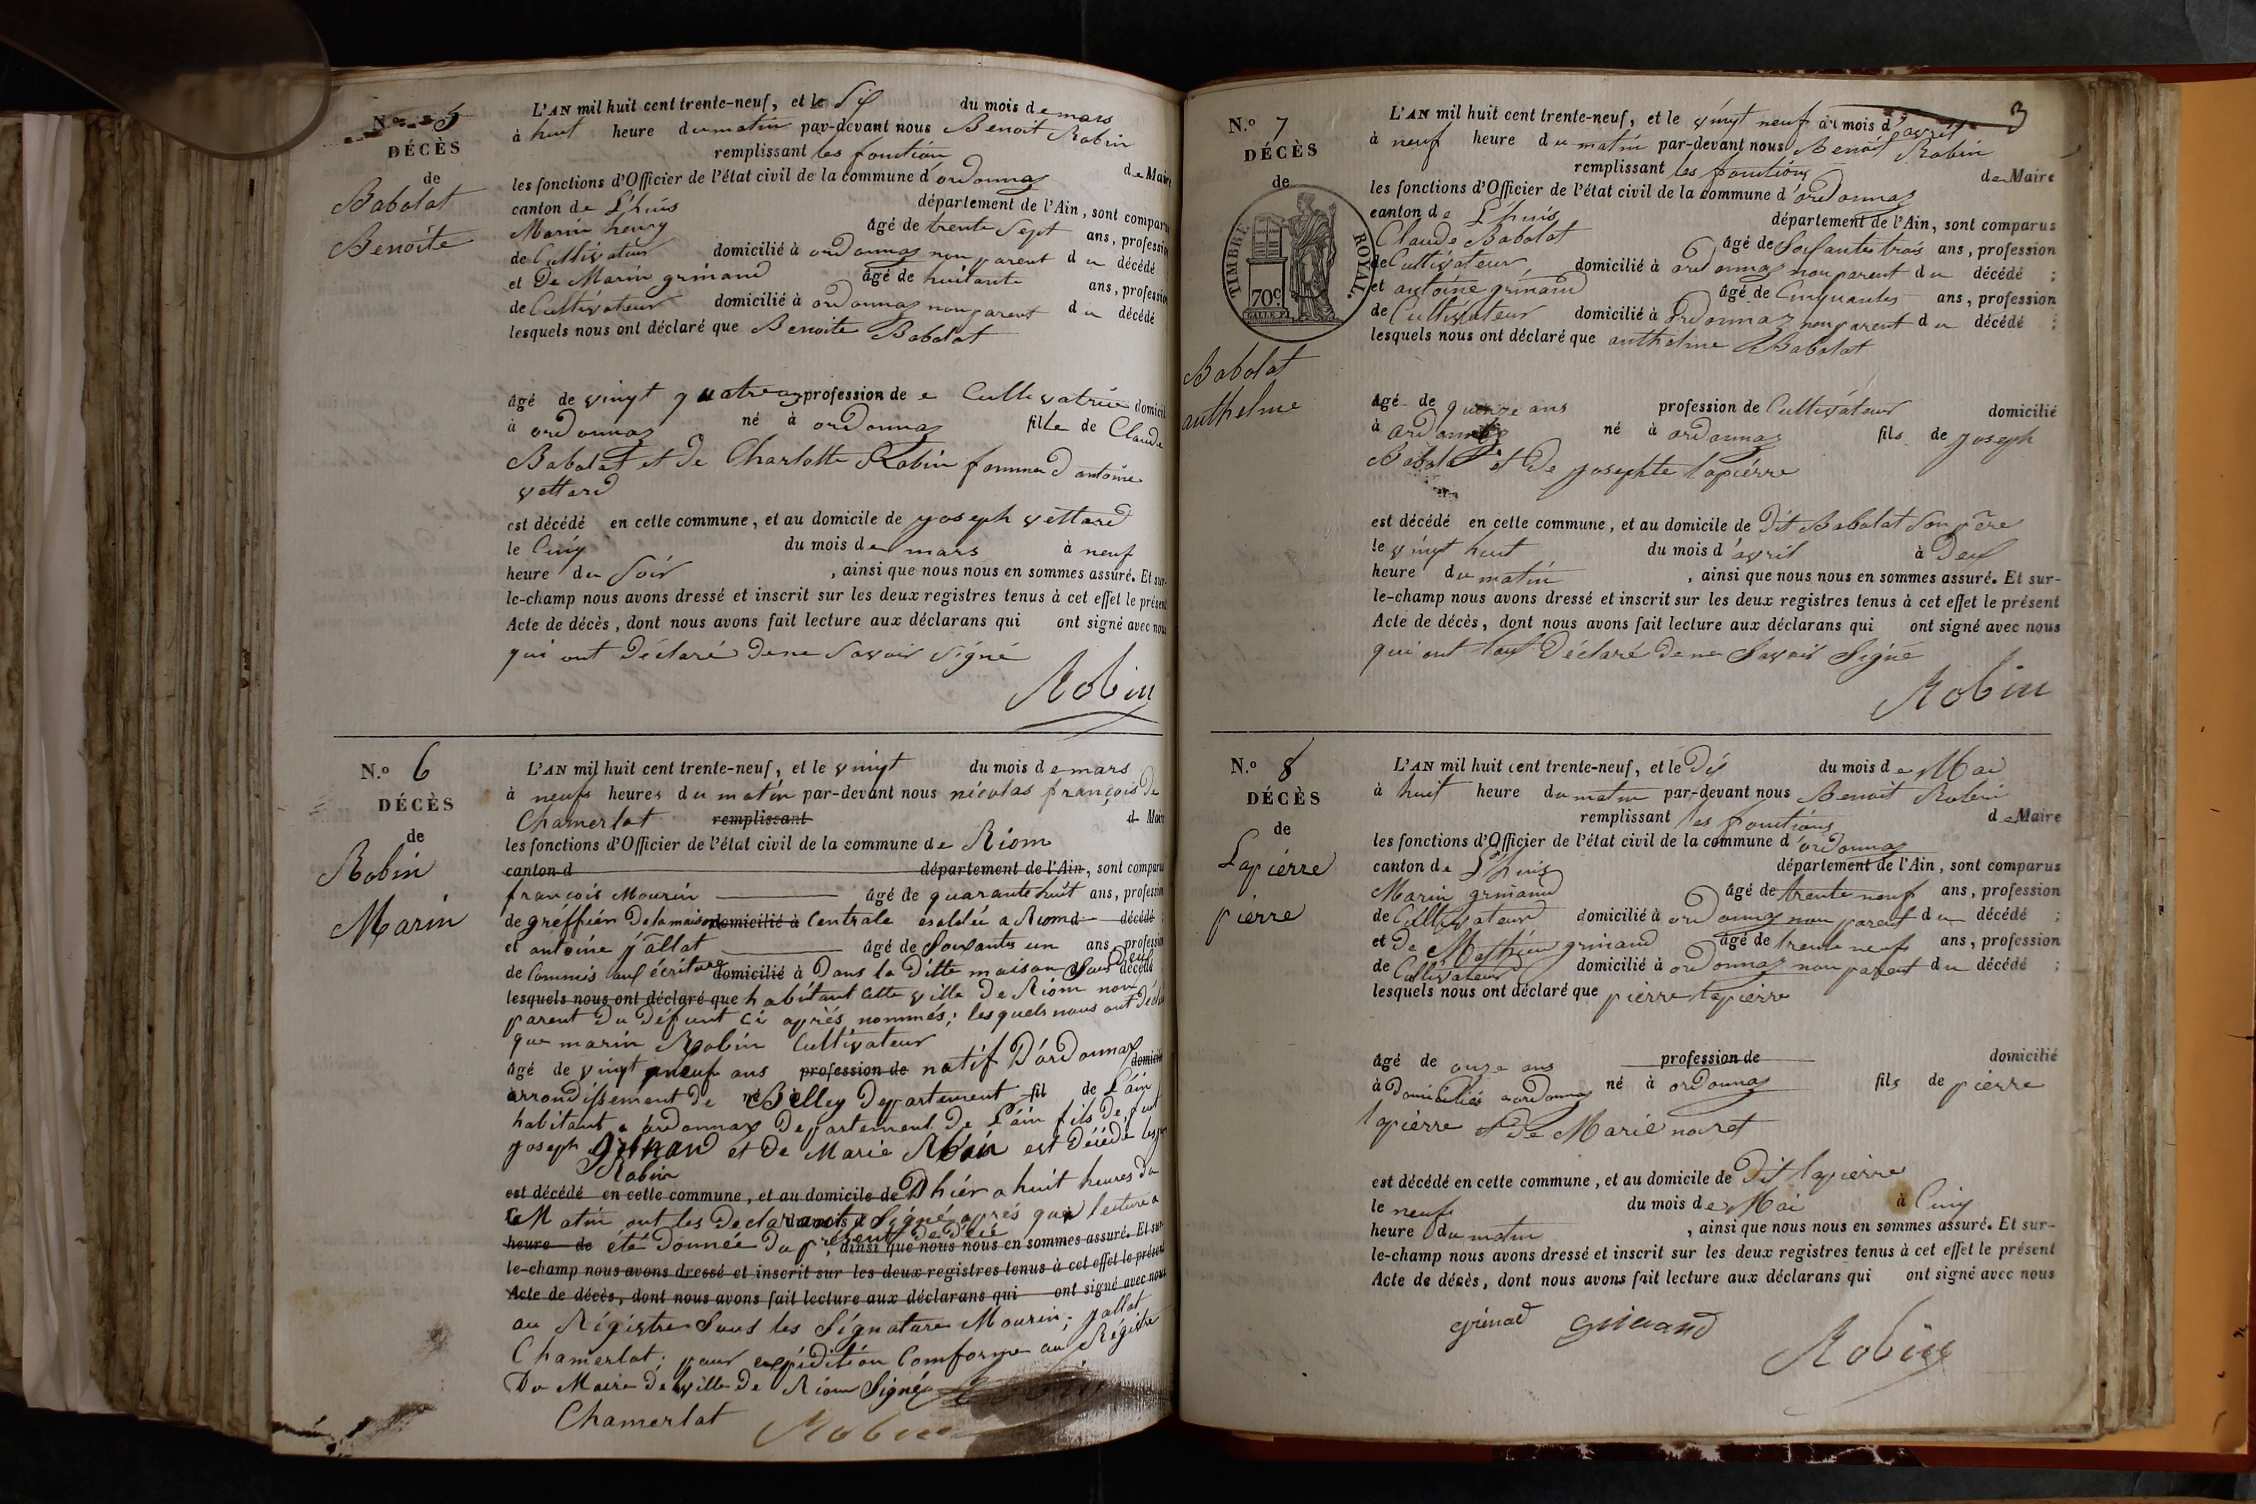 N.º 5
DÉCÈS
de
Babolat
Benoite
L'AN mil huit cent trente-neuf, et le Six du mois de mars
à huit heure du matin par-devant nous Benoit Robin
remplissant les fonction de Maire
les fonctions d'Officier de l'état civil de la commune d'ordonnaz
canton de L'huis département de l'Ain, sont comparus
Marin henry âgé de trente Sept ans, profession
de Cultivateur domicilié à ordonnaz non parent du décédé
et De Marin grinand âgé de huitante ans, profession
de Cultivateur domicilié à ordonnaz non parent du décédé
lesquels nous ont déclaré que Benoite Babolat
âgé de vingt quatre profession de Cultivatrice domicil
à ordonnaz né à ordonnaz fille de Claude
Babolat et de Charlotte Robin femme d antoine
vettard
est décédé en cette commune, et au domicile de joseph vettard
le Cinq du mois de mars à neuf
heure du Soir , ainsi que nous nous en sommes assuré. Et sur-
le-champ nous avons dressé et inscrit sur les deux registres tenus à cet effet le présent
Acte de décès, dont nous avons fait lecture aux déclarans qui ont signé avec nous
qui ont Déclaré De ne Savoir Signé
Robin
N.º 6
DÉCÈS
de
Robin
Marin
L'AN mil huit cent trente-neuf, et le vingt du mois de mars
à neufs heures du matin par-devant nous nicolas françois De
Chamerlat remplissant d Maire
les fonctions d'Officier de l'état civil de la commune de Riom
canton d département de l'Ain, sont comparus
françois Mourin âgé de quarante huit ans, profession
de gréffier De la maison domicilié à Centrale a Riom d décédé
et antoine jallat âgé de Soixante un ans, profession
de Commis aux écriture domicilié à Dans la Ditte maison décédé
lesquels nous ont déclaré que habitant Cette ville De Riom non
parent Du Défunt Ci aprés nommés; les quels nous ont Décla
que marin Robin Cultivateur
âgé de vingt neuf ans profession de natif D'ordonnaz domicil
à arrondissement de né à Belley Departement fil de L'ain
habitant a ordonnaz Departement De L'ain fils De fut
joseph grinand et De Marie Robin est Décédé
Robin
est décédé en cette commune, et au domicile de D hiér a huit heures Du
le Matin ont les Declarants Signé aprés que lecture a
heure de été Donnée Du présent ainsi que nous nous en sommes assuré. Et sur-
le-champ nous avons dressé et inscrit sur les deux registres tenus à cet effet le présent
Acte de décès, dont nous avons fait lecture aux déclarans qui ont signé avec nous
au Régistre Sous les Signature Mourin; jallat
Chamerlat; pour expédition Comforme au Régistre
Du Maire De ville De Riom Signé
Chamerlat Robin
3
N.º 7
DÉCÈS
de
TIMBRE ROYAL.
70c
Babolat
anthelme
L'AN mil huit cent trente-neuf, et le vingt neuf du mois d'avril
à neuf heure du matin par-devant nous Benoit Robin
remplissant les fonctions de Maire
les fonctions d'Officier de l'état civil de la commune d'ordonnaz
canton de L'huis département de l'Ain, sont comparus
Claude Babolat âgé de Soixante trois ans, profession
de Cultivateur, domicilié à ordonnaz non parent du décédé ;
et antoine grinand âgé de Cinquantes ans, profession
de Cultivateur domicilié à ordonnaz non parent du décédé ;
lesquels nous ont déclaré que anthelme Babolat
âgé de quinze ans profession de Cultivateur domicilié
à ordonnaz né à ordonnaz fils de joseph
Babolat et De josephte lapiérre
est décédé en cette commune, et au domicile de Dit Babolat Son père
le vingt huit du mois d'avril à Deux
heure du matin , ainsi que nous nous en sommes assuré. Et sur-
le-champ nous avons dressé et inscrit sur les deux registres tenus à cet effet le présent
Acte de décès, dont nous avons fait lecture aux déclarans qui ont signé avec nous
qui ont tous Déclaré De ne Savoir Signé
Robin
N.º 8
DÉCÈS
de
Lapierre
pierre
L'AN mil huit cent trente-neuf, et le Dix du mois de Mai
à huit heure du matin par-devant nous Benoit Robin
remplissant les fonctions de Maire
les fonctions d'Officier de l'état civil de la commune d'ordonnaz
canton de L'huis département de l'Ain, sont comparus
Marin grinand âgé de trente neuf ans, profession
de Cultivateur domicilié à ordonnaz non parent du décédé ;
et De Mathieu grinand âgé de trente neuf ans, profession
de Cultivateur domicilié à ordonnaz non parent du décédé ;
lesquels nous ont déclaré que pierre lapierre
âgé de onze ans profession de domicilié
à Domiciliés a ordonnaz né à ordonnaz fils de pierre
lapierre et De Marie noiret
est décédé en cette commune, et au domicile de Dit lapierre
le neuf du mois de Mai à Cinq
heure du matin , ainsi que nous nous en sommes assuré. Et sur-
le-champ nous avons dressé et inscrit sur les deux registres tenus à cet effet le présent
Acte de décès, dont nous avons fait lecture aux déclarans qui ont signé avec nous
grinad grinand
Robin